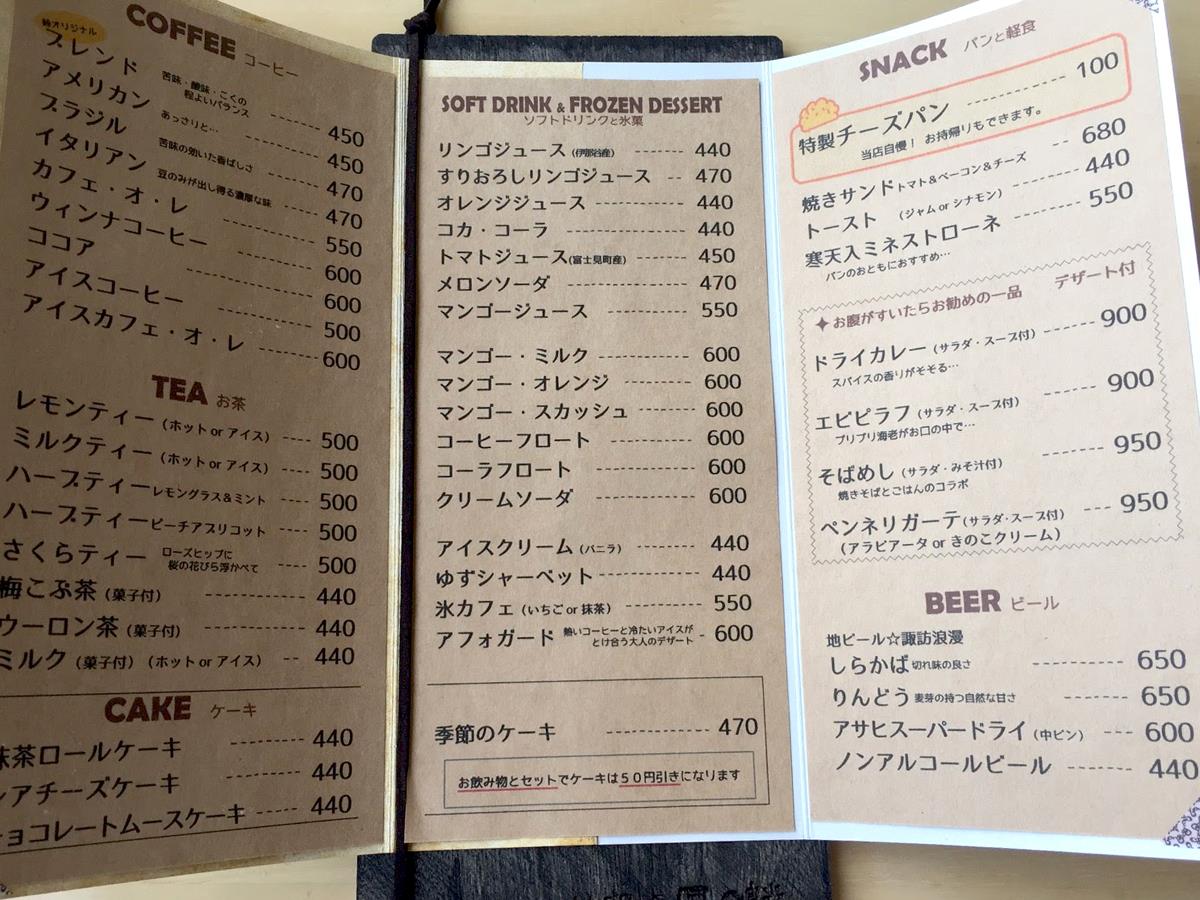 COFFEE コーヒー
オリジナル
ブレンド 苦味・酸味・こくの程よいバランス 450
アメリカン あっさりと… 450
ブラジル 苦味の効いた香ばしさ 470
イタリアン 豆のみが出し得る濃厚な味 470
カフェ・オ・レ 550
ウィンナコーヒー 600
ココア 600
アイスコーヒー 500
アイスカフェ・オ・レ 600
TEA お茶
レモンティー (ホット or アイス) 500
ミルクティー (ホット or アイス) 500
ハーブティー レモングラス&ミント 500
ハーブティー ピーチアプリコット 500
さくらティー ローズヒップに桜の花びら浮かべて 500
梅こぶ茶 (菓子付) 440
ウーロン茶 (菓子付) 440
ミルク (菓子付) (ホット or アイス) 440
CAKE ケーキ
抹茶ロールケーキ 440
レアチーズケーキ 440
チョコレートムースケーキ 440
SOFT DRINK & FROZEN DESSERT
ソフトドリンクと氷菓
リンゴジュース (伊那谷産) 440
すりおろしリンゴジュース 470
オレンジジュース 440
コカ・コーラ 440
トマトジュース (富士見町産) 450
メロンソーダ 470
マンゴージュース 550
マンゴー・ミルク 600
マンゴー・オレンジ 600
マンゴー・スカッシュ 600
コーヒーフロート 600
コーラフロート 600
クリームソーダ 600
アイスクリーム (バニラ) 440
ゆずシャーベット 440
氷カフェ (いちご or 抹茶) 550
アフォガード 熱いコーヒーと冷たいアイスがとけ合う大人のデザート 600
季節のケーキ 470
お飲み物とセットでケーキは50円引きになります
SNACK パンと軽食
特製チーズパン 100
当店自慢! お持帰りもできます。
焼きサンド トマト&ベーコン&チーズ 680
トースト (ジャム or シナモン) 440
寒天入ミネストローネ 550
パンのおともにおすすめ…
✦お腹がすいたらお勧めの一品 デザート付
ドライカレー (サラダ・スープ付) 900
スパイスの香りがそそる…
エビピラフ (サラダ・スープ付) 900
プリプリ海老がお口の中で…
そばめし (サラダ・みそ汁付) 950
焼きそばとごはんのコラボ
ペンネリガーテ (サラダ・スープ付) 950
(アラビアータ or きのこクリーム)
BEER ビール
地ビール☆諏訪浪漫
しらかば 切れ味の良さ 650
りんどう 麦芽の持つ自然な甘さ 650
アサヒスーパードライ (中ビン) 600
ノンアルコールビール 440